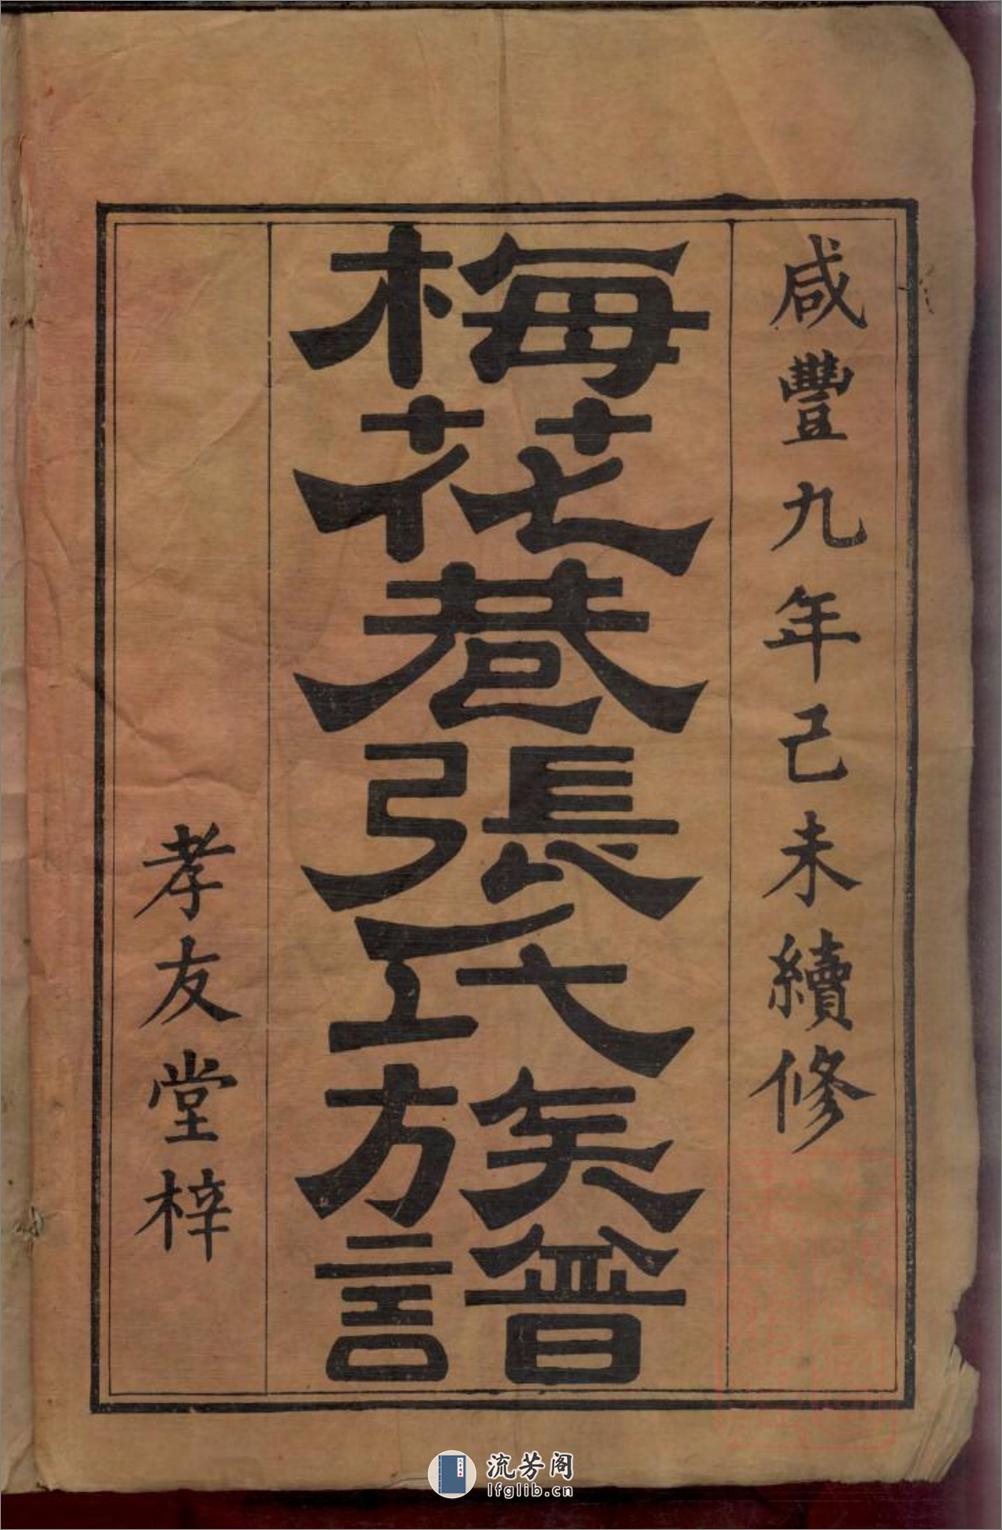 咸豐九年己未續修
梅花巷張氏族譜
孝友堂梓
流芳阁
lfglib.cn